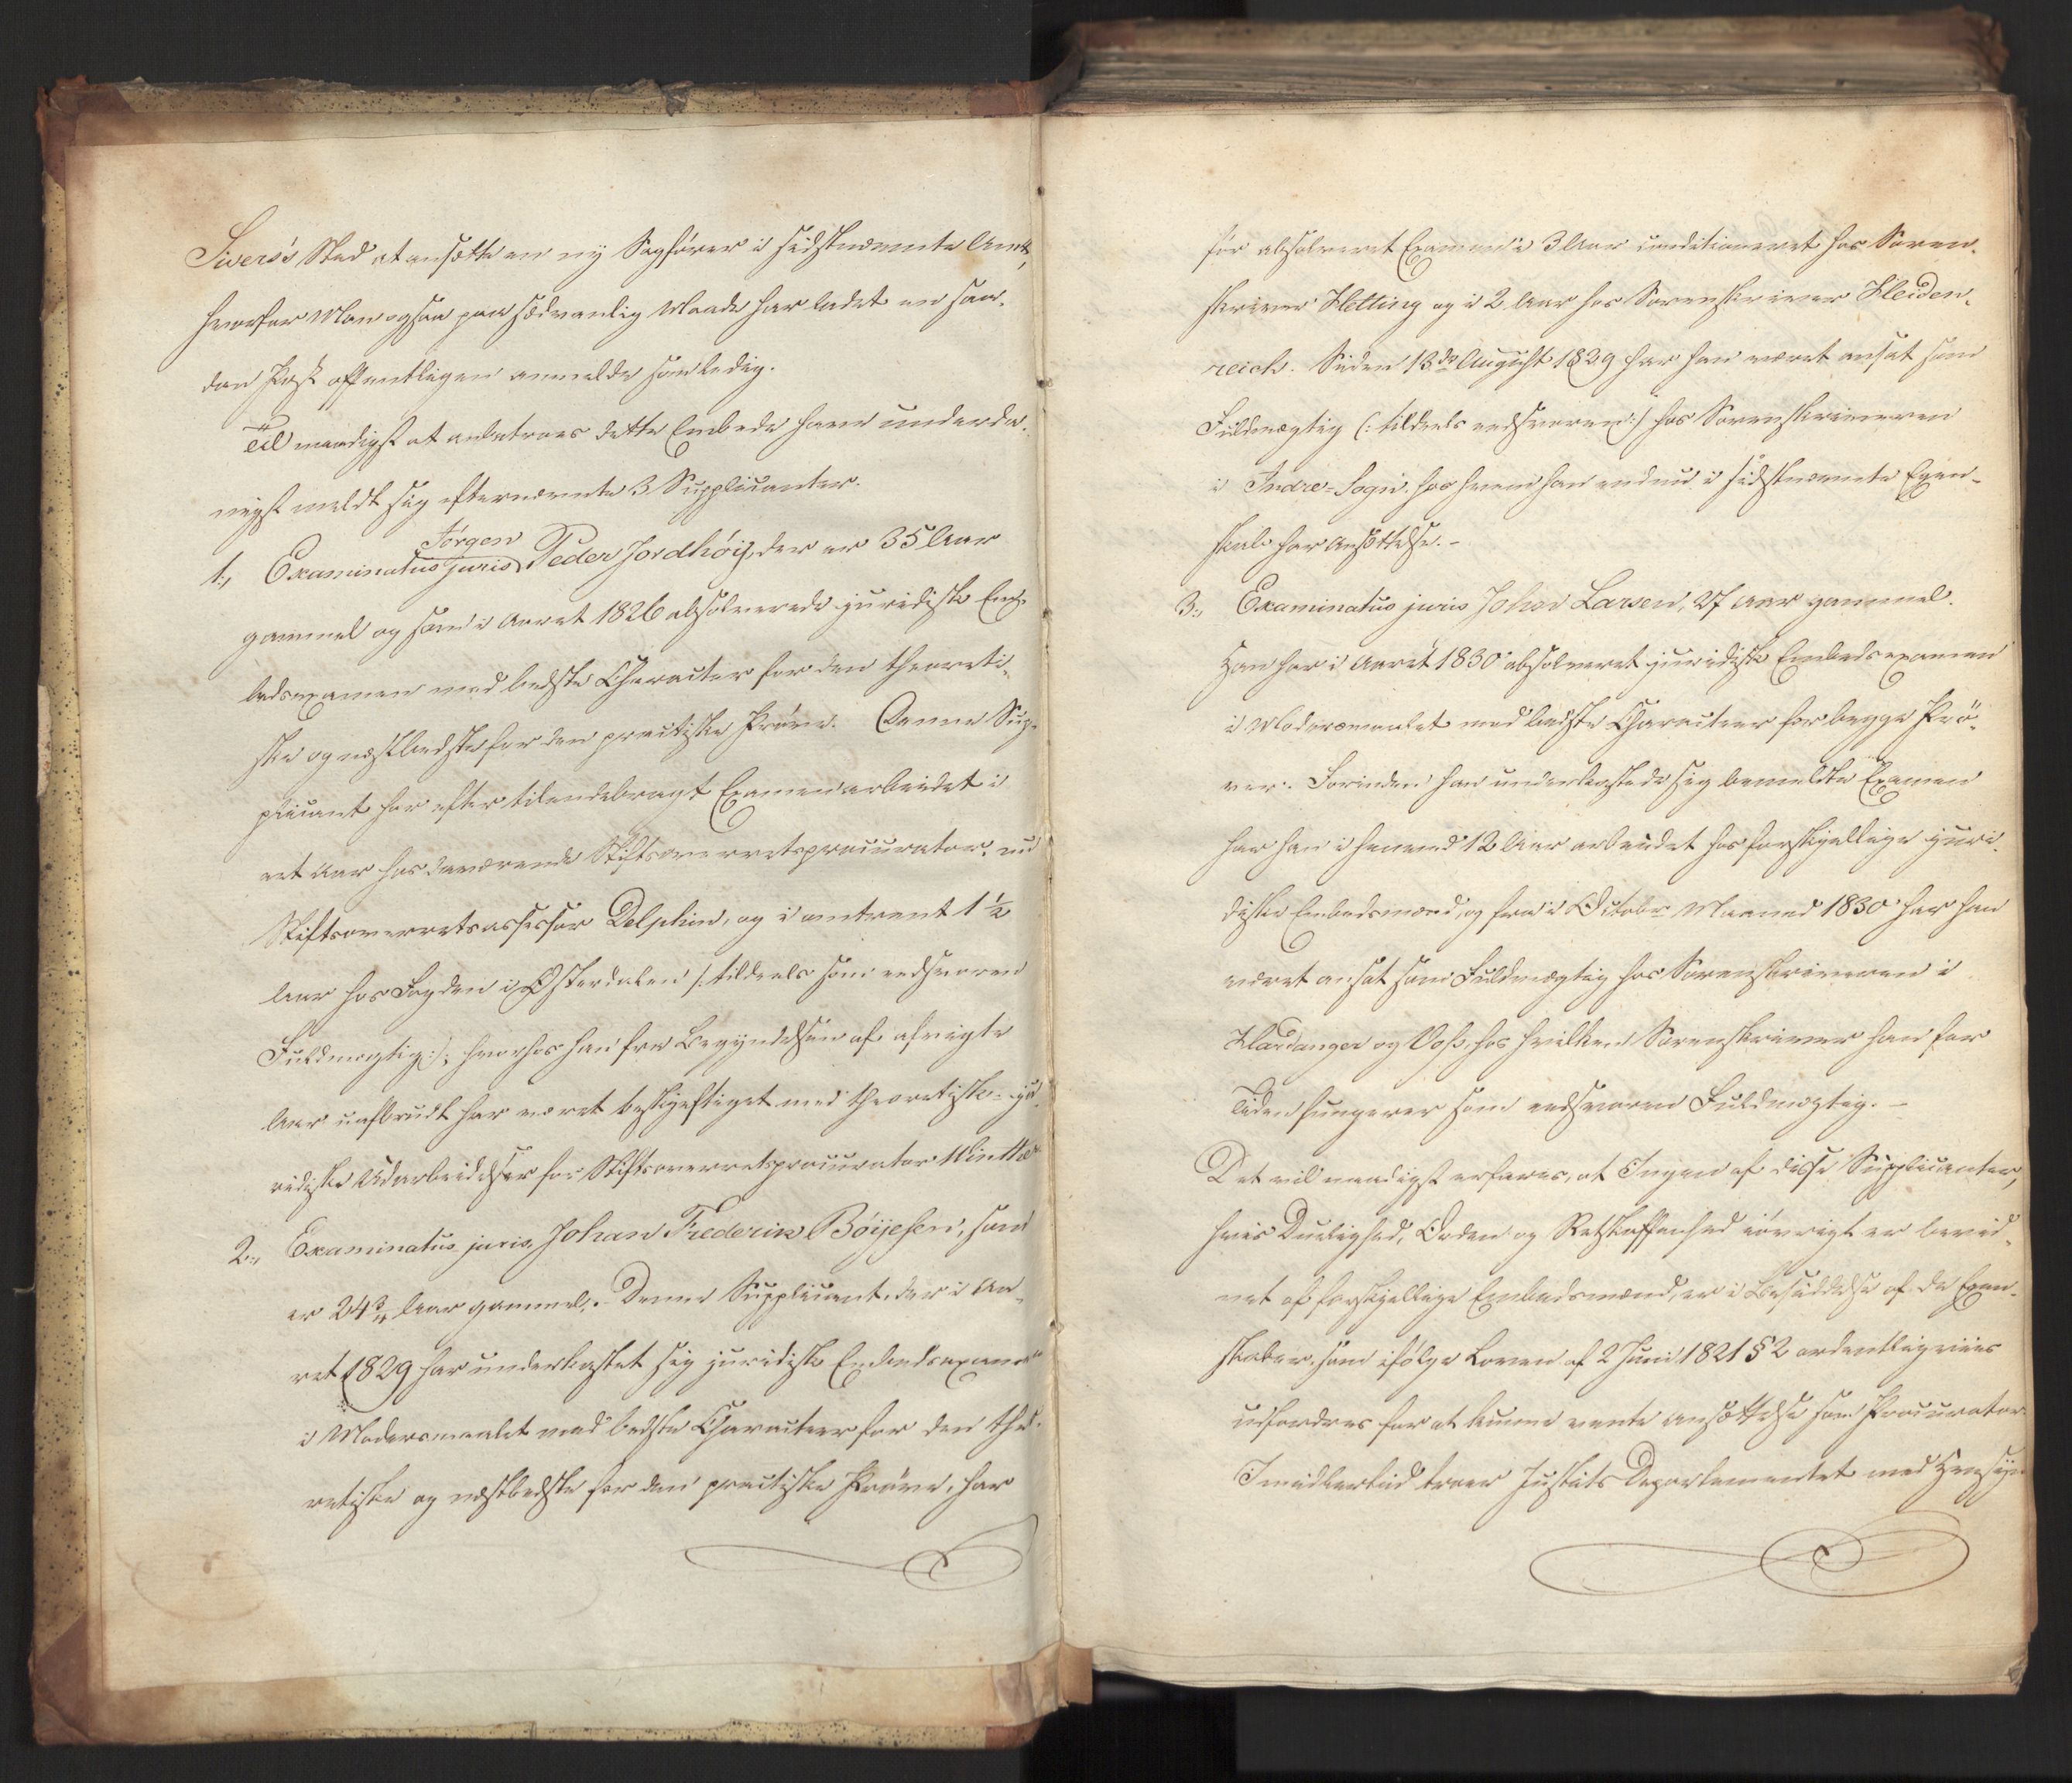 Sivers's Sted at ansætte en ny Sagfører i sidstnævnte Amt,
hvorfor Man ogsaa paa sædvanlig Maade har ladet en saa-
dan Post offentligen anmelde som ledig.
Til naadigst at anbetroes dette Embede have underda-
nigst meldt sig efternævnte 3 Supplicanter.
1., Examinatus juris Jörgen Peder Jordhöij, der er 35 Aar
gammel og som i Aaret 1826 absolverede juridisk Em-
bedsexamen med bedste Character for den theoreti-
ske og næstbedste for den practiske Pröve. Denne Sup-
plicant har efter tilendebragt Examen arbeidet i
eet Aar hos daværende Stiftsoverretsprocurator, nu
Stiftsoverretsassessor Delphin, og i omtrent 1 ½
Aar hos Fogden i Østerdalen /: tildeels som eedsvoren
Fuldmægtig :/, hvorhos han fra Begyndelsen af afvigte
Aar uafbrudt har været beskjeftiget med theoretisk-ju-
ridiske Udarbeidelser for Stiftsoverretsprocurator Winther
2., Examinatus juris, Johan Frederik Böijesen, som
er 24¾ Aar gammel. Denne Supplicant, der i Aa-
ret 1829 har underkastet sig juridisk Embedsexamen
i Modersmaalet med bedste Character for den theo-
retiske og næstbedste for den practiske Pröve, har
för absolveret Examen i 3 Aar conditioneret hos Soren-
skriver Hetting og i 2 Aar hos Sorenskriver Heiden-
reich. Siden 13de August 1829 har han været ansat som
Fuldmægtig (: tildeels eedsvoren :) hos Sorenskriveren
i Indre-Sogn, hos hvem han endnu i sidstnævnte Egen-
skab har Ansættelse. -
3., Examinatus juris Johan Larsen, 27 Aar gammel.
Han har i Aaret 1830 absolveret juridisk Embedsexamen
i Modersmaalet med bedste Character for begge Prö-
ver. Forinden han underkastede sig bemeldte Examen
har han i henved 12 Aar arbeidet hos forskjellige juri-
diske Embedsmænd, og fra i October Maaned 1830 har han
været ansat som Fuldmægtig hos Sorenskriveren i
Hardanger og Voss, hos hvilken Sorenskriver han for
Tiden fungerer som eedsvoren Fuldmægtig. -
Det vil naadigst erfares, at Ingen af disse Supplicanter,
hvis Duelighed, Orden og Retskaffenhed iövrigt er bevid-
net af forskjellige Embedsmænd, er i Besiddelse af de Egen-
skaber, som ifölge Loven af 2 Juni 1821 § 2 ordentligviis
udfordres for at kunne vente Ansættelse som Procurator.
Imidlertid troer Justits Departementet med Hensyn